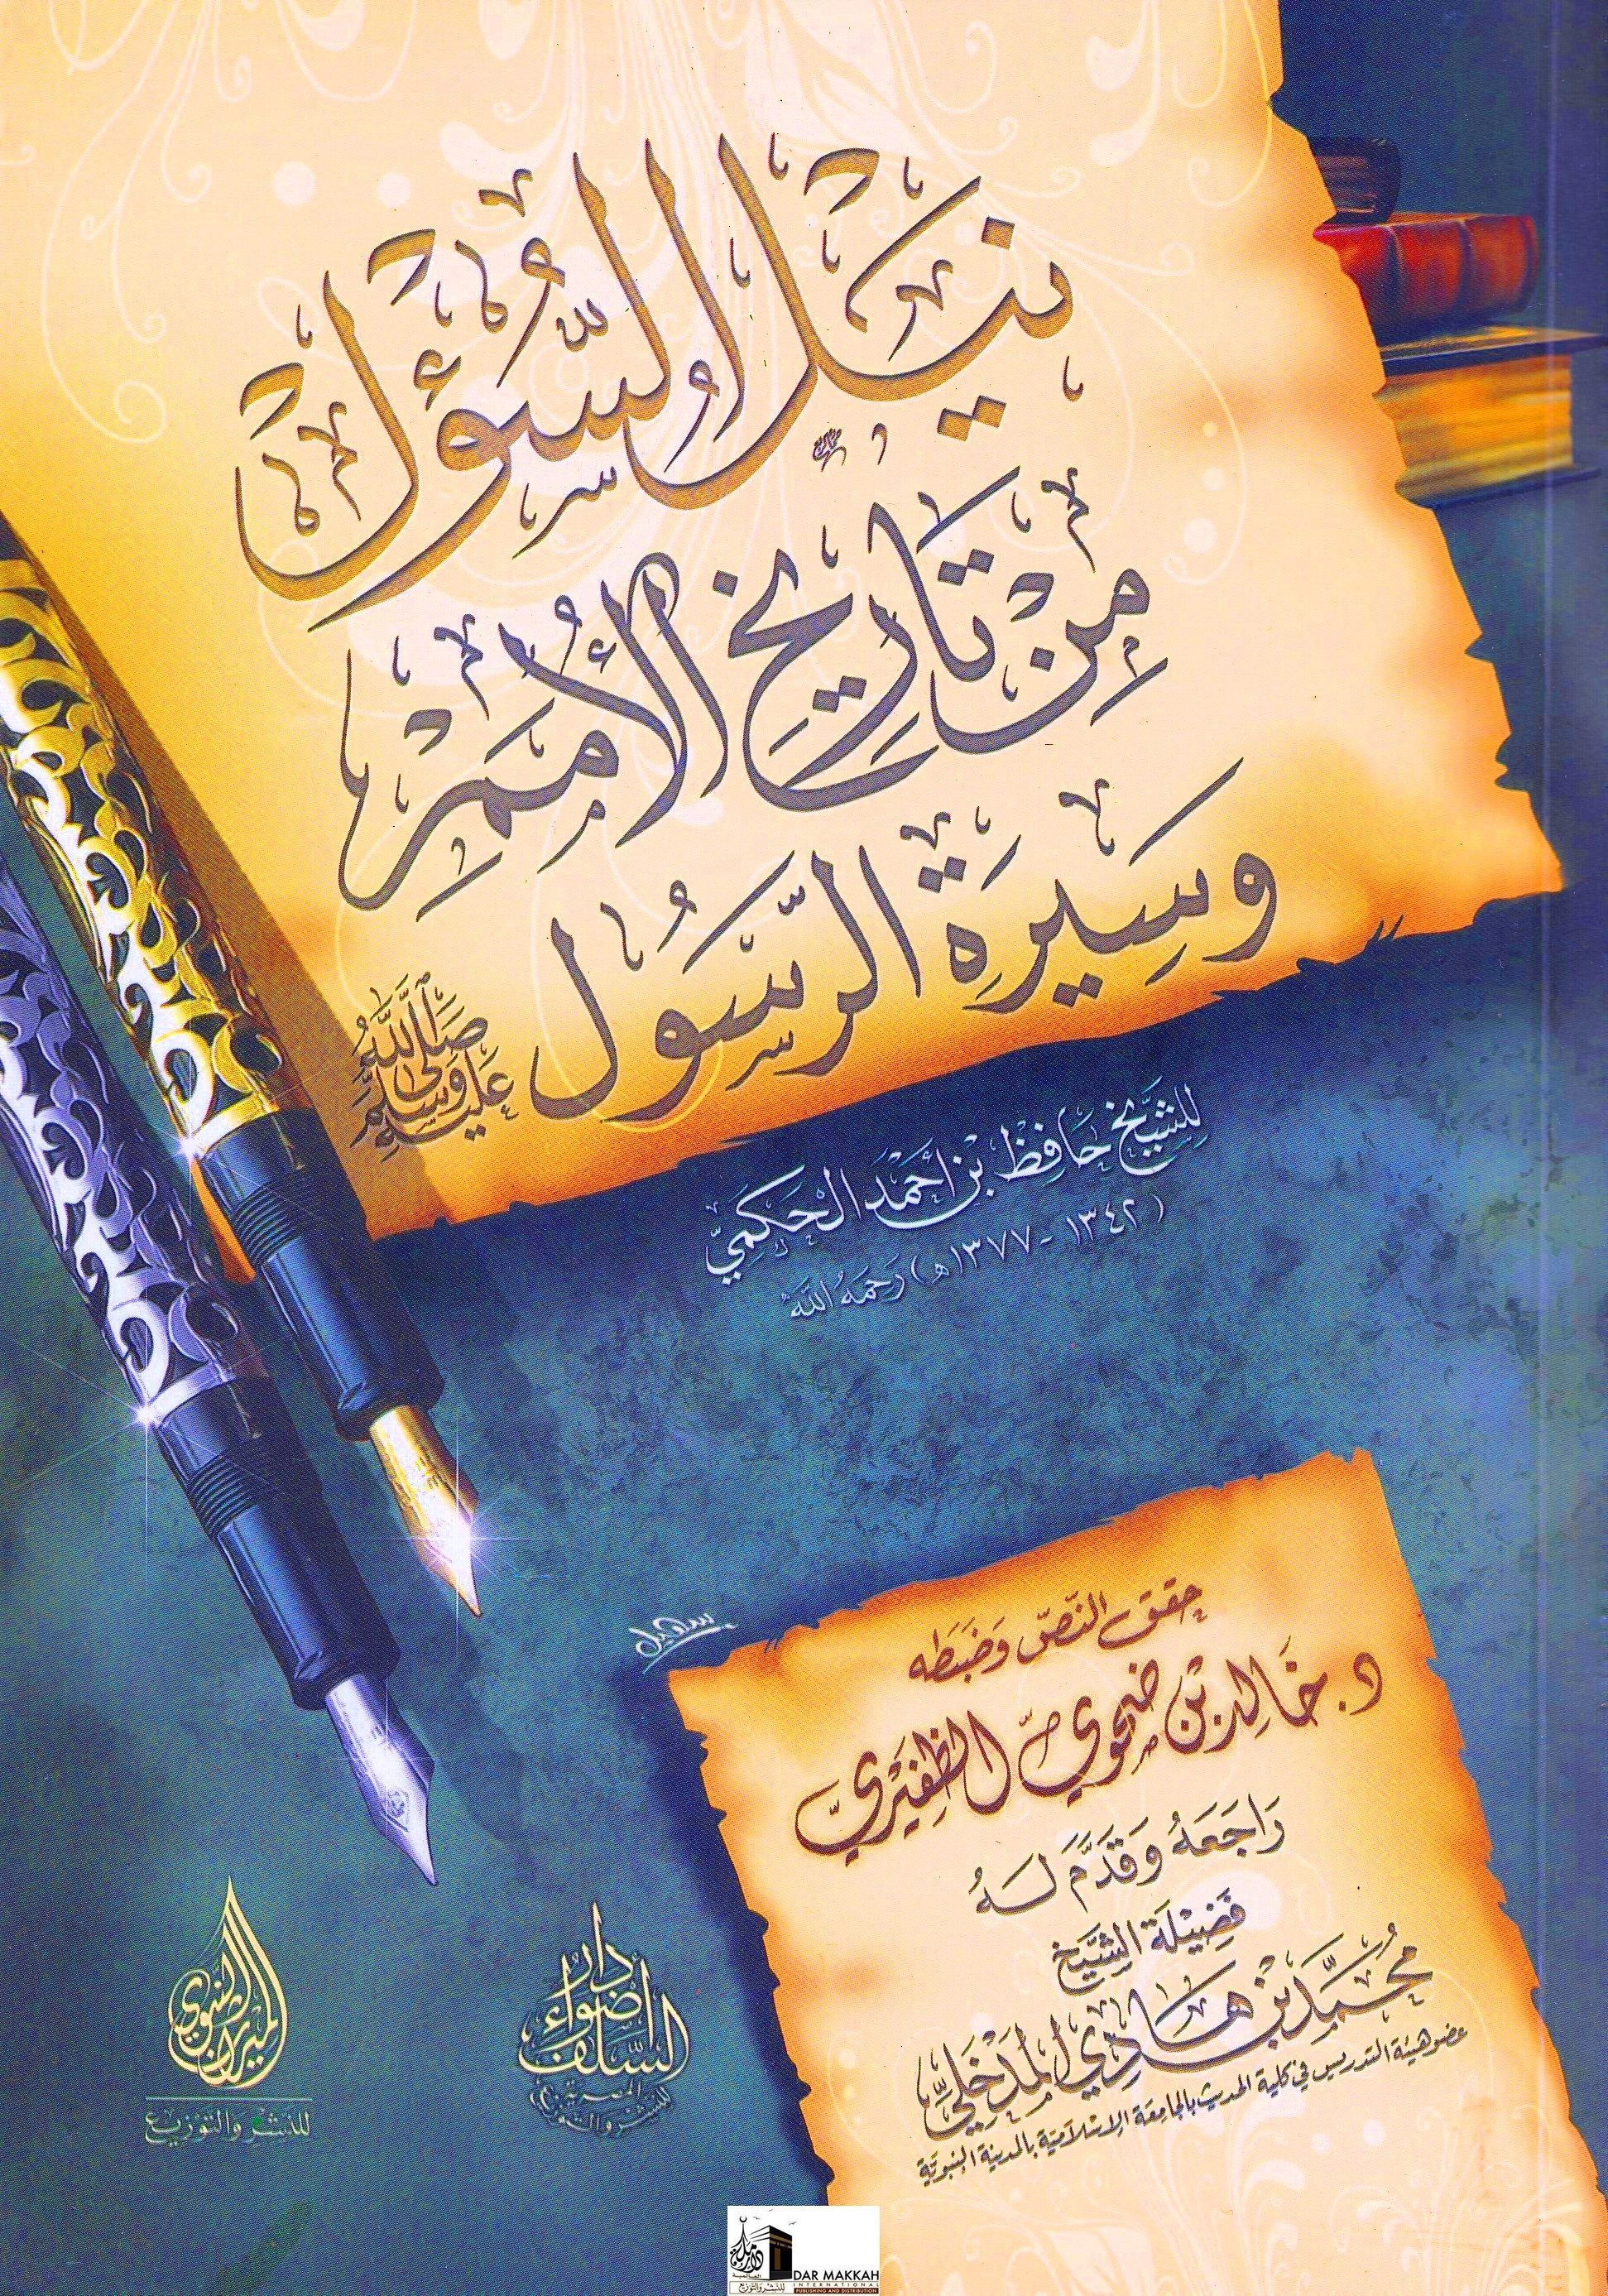 نَيْلُ السُّؤْلِ
مِنْ تَارِيخِ الأُمَمِ
وَسِيرَةِ الرَّسُولِ
صَلَّى اللَّهُ عَلَيْهِ وَسَلَّمَ
لِلشَّيْخِ حَافِظِ بْنِ أَحْمَدَ الحَكَمِيِّ
(١٣٤٢ - ١٣٧٧ه) رَحِمَهُ اللَّهُ
حقق النَّصّ وَضَبَطَه
د. خَالِد بْن ضَحَوِي الظَّفِيرِيّ
رَاجَعَهُ وَقَدَّمَ لَهُ
فَضِيلَة الشَّيْخ
مُحَمَّد بْن هَادِي المَدْخَلِيّ
عضو هيئة التدريس في كلية الحديث بالجامعة الإسلامية بالمدينة النبوية
سهيل
الميراث النبوي
للنشر والتوزيع
دار أضواء السلف
المصرية
للنشر والتوزيع
دار مكة
العالمية
للنشر والتوزيع
DAR MAKKAH
INTERNATIONAL
PUBLISHING AND DISTRIBUTION